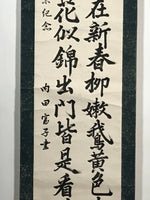 在新春柳嫩鵞黄色
花似錦出門皆是看
内田富子書
紀念